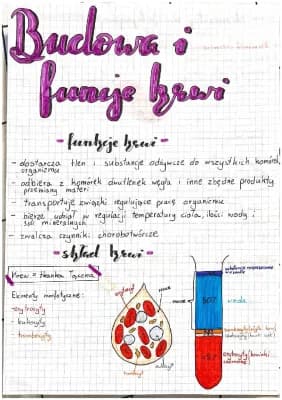 Budowa i
funcje krwi
- funkcje krwi -
- dostarcza tlen i substancje odżywcze do wszystkich komórek
organizmu
- odbiera z komórek dwutlenek węgla i inne zbędne produkty
przemiany materii
- transportuje związki regulujące pracę organizmu
- bierze udział w regulacji temperatury ciała, ilości wody i
soli mineralnych
- zwalcza czynniki chorobotwórcze
- skład krwi -
Krew = tkanka łączna
Elementy morfotyczne:
- erytrocyty
- leukocyty
- trombocyty
osocze
woda